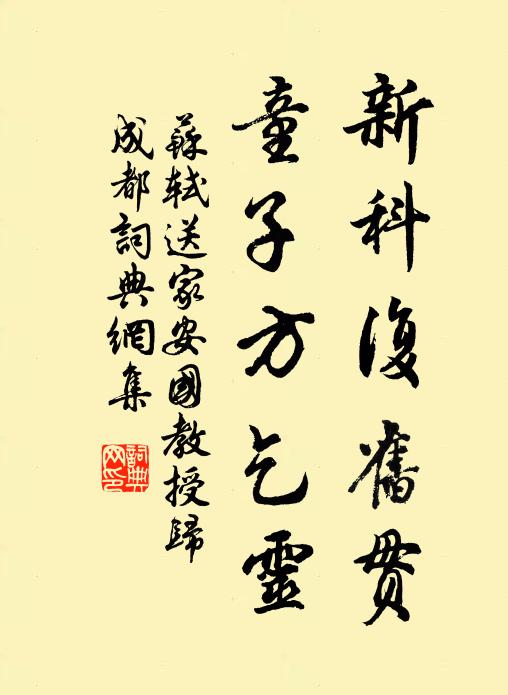 新科復舊貫
童子方乞靈
蘇軾送家安國教授歸
成都詞典網集
詞典
网印